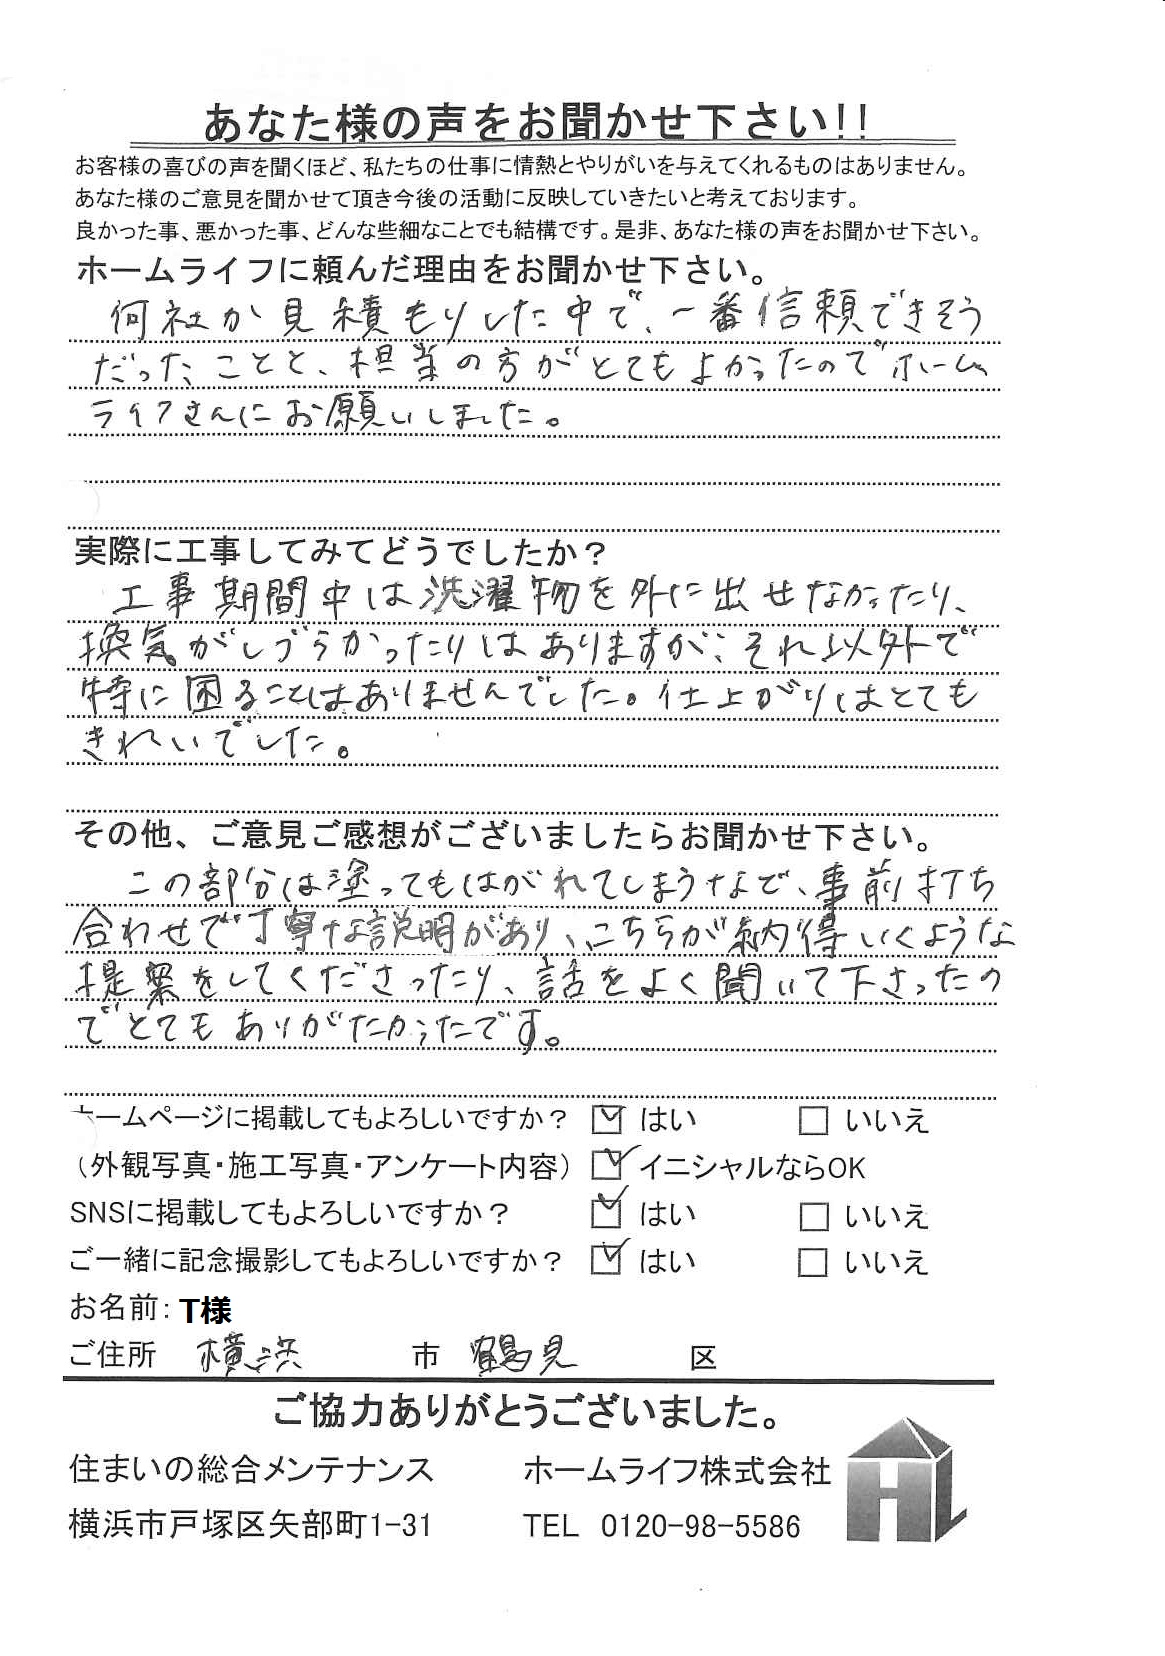 あなた様の声をお聞かせ下さい!!
お客様の喜びの声を聞くほど、私たちの仕事に情熱とやりがいを与えてくれるものはありません。
あなた様のご意見を聞かせて頂き今後の活動に反映していきたいと考えております。
良かった事、悪かった事、どんな些細なことでも結構です。是非、あなた様の声をお聞かせ下さい。
ホームライフに頼んだ理由をお聞かせ下さい。
何社か見積もりした中で、一番信頼できそう
だったことと、担当の方がとてもよかったのでホーム
ライフさんにお願いしました。
実際に工事してみてどうでしたか？
工事期間中は洗濯物を外に出せなかったり、
換気がしづらかったりはありますが、それ以外で
特に困ることはありませんでした。仕上がりはとても
きれいでした。
その他、ご意見ご感想がございましたらお聞かせ下さい。
この部分は塗ってもはがれてしまうなど、事前打ち
合わせで丁寧な説明があり、こちらが納得いくような
提案をしてくださったり、話をよく聞いて下さったの
でとてもありがたかったです。
ホームページに掲載してもよろしいですか？ はい いいえ
（外観写真・施工写真・アンケート内容） イニシャルならOK
SNSに掲載してもよろしいですか？ はい いいえ
ご一緒に記念撮影してもよろしいですか？ はい いいえ
お名前：T様
ご住所 横浜 市 鶴見 区
ご協力ありがとうございました。
住まいの総合メンテナンス ホームライフ株式会社
横浜市戸塚区矢部町1-31 TEL 0120-98-5586
HL